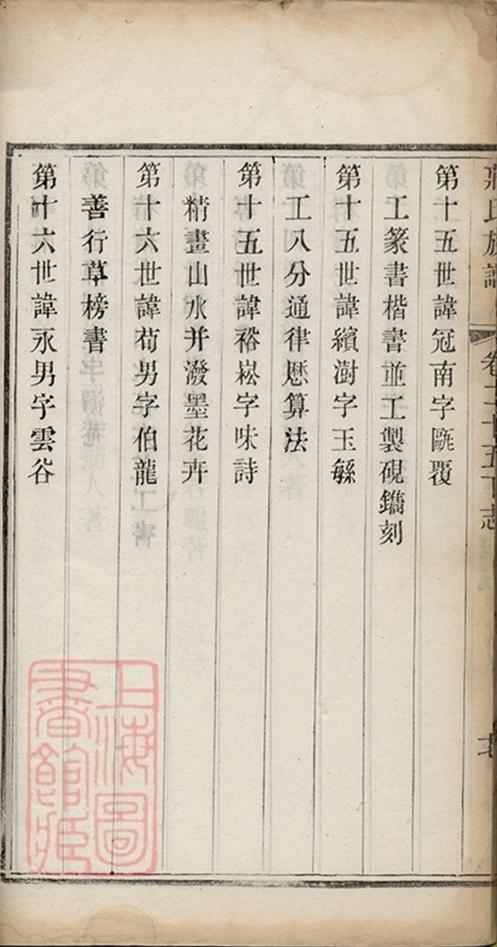 氏族譜
卷二十五下志
第十五世諱冠南字甌覆
工篆書楷書並工製硯鐫刻
第十五世諱繽澍字玉緐
工八分通律厯算法
第十五世諱裕崧字味詩
精畫山水并潑墨花卉
第十六世諱荀男字伯龍
善行草榜書
第十六世諱永男字雲谷
上海圖
書館藏